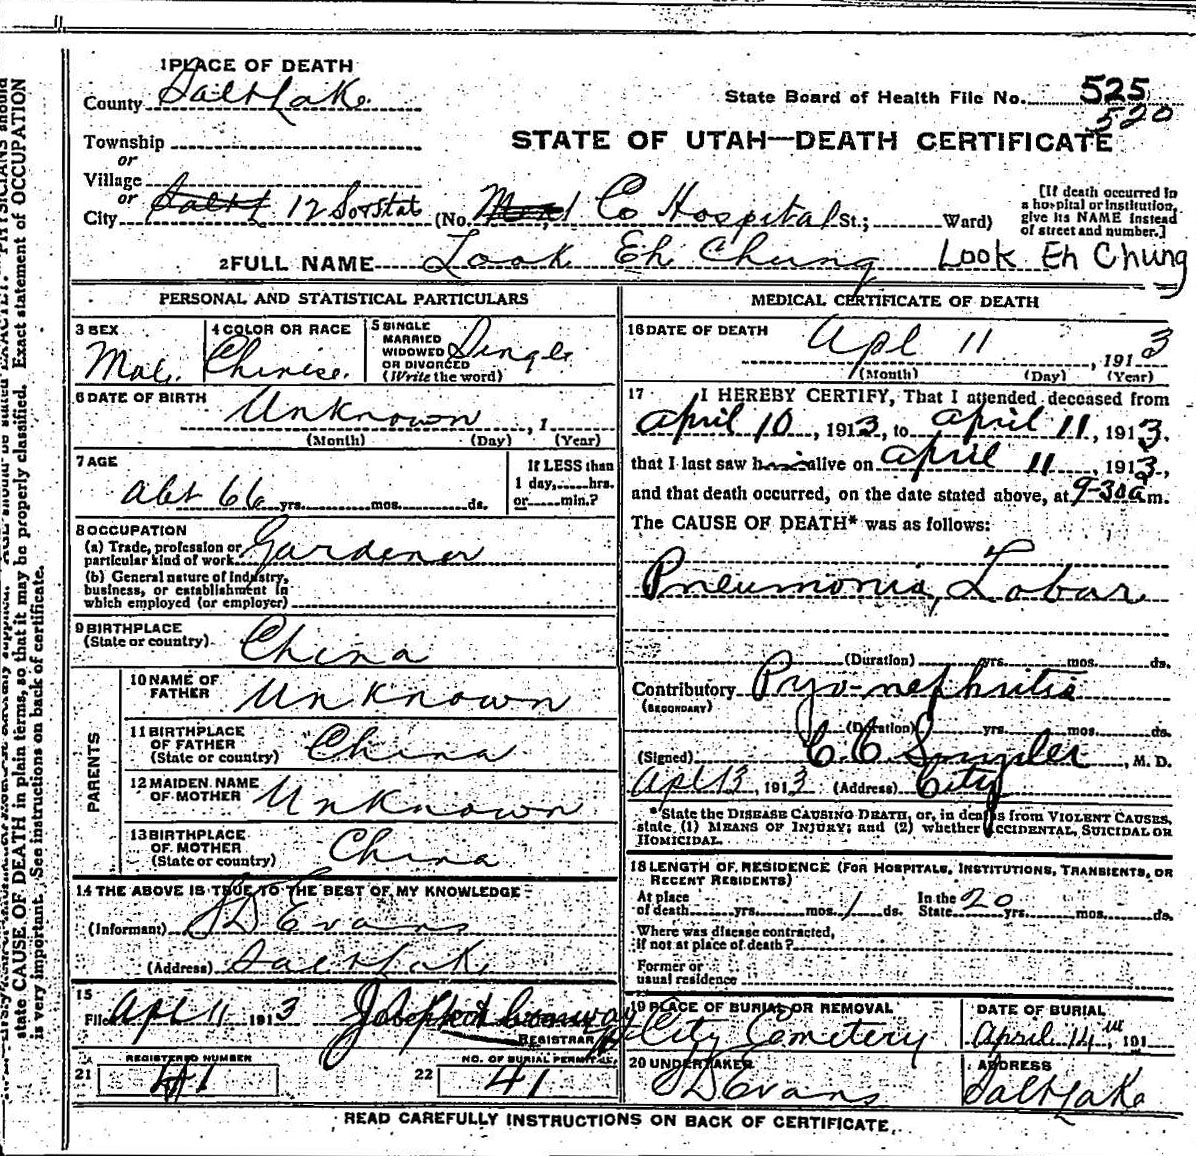 1 PLACE OF DEATH
County Salt Lake
State Board of Health File No. 525
520
Township
or
Village
or
STATE OF UTAH—DEATH CERTIFICATE
City 12 Sostat (No. Co Hospital St.; Ward)
[If death occurred in
a hospital or institution,
give its NAME instead
of street and number.]
2 FULL NAME Look Eh Chung Look Eh Chung
PERSONAL AND STATISTICAL PARTICULARS
3 SEX
Male
4 COLOR OR RACE
Chinise.
5 SINGLE
MARRIED
WIDOWED
OR DIVORCED
(Write the word)
Single
6 DATE OF BIRTH
Unknown , 1
(Month) (Day) (Year)
7 AGE
abt 66 yrs. mos. ds.
If LESS than
1 day, hrs.
or min.?
8 OCCUPATION
(a) Trade, profession or
particular kind of work Gardener
(b) General nature of industry,
business, or establishment in
which employed (or employer)
9 BIRTHPLACE
(State or country) China
PARENTS
10 NAME OF
FATHER Unknown
11 BIRTHPLACE
OF FATHER
(State or country) China
12 MAIDEN NAME
OF MOTHER Unknown
13 BIRTHPLACE
OF MOTHER
(State or country) China
14 THE ABOVE IS TRUE TO THE BEST OF MY KNOWLEDGE
(Informant) S D Evans
(Address) Salt Lake
15
Filed Apl 11 1913
REGISTRAR
REGISTERED NUMBER
21 41
NO. OF BURIAL PERMIT
22 41
MEDICAL CERTIFICATE OF DEATH
16 DATE OF DEATH
Apl 11 , 1913
(Month) (Day) (Year)
17 I HEREBY CERTIFY, That I attended deceased from
April 10, 1913, to April 11, 1913.
that I last saw h alive on April 11, 1913,
and that death occurred, on the date stated above, at 9-30am.
The CAUSE OF DEATH* was as follows:
Pneumonia, Lobar
(Duration) yrs. mos. ds.
Contributory Pyo-nephritis
(SECONDARY)
(Duration) yrs. mos. ds.
(Signed) , M. D.
Apl 13, 1913 (Address) City
*State the DISEASE CAUSING DEATH, or, in deaths from VIOLENT CAUSES,
state (1) MEANS OF INJURY; and (2) whether ACCIDENTAL, SUICIDAL OR
HOMICIDAL.
18 LENGTH OF RESIDENCE (FOR HOSPITALS, INSTITUTIONS, TRANSIENTS, OR
RECENT RESIDENTS)
At place
of death yrs. mos. 1 ds. In the
State 20 yrs. mos. ds.
Where was disease contracted,
if not at place of death?
Former or
usual residence
19 PLACE OF BURIAL OR REMOVAL
City Cemetery
DATE OF BURIAL
April 14, 191
20 UNDERTAKER
S D Evans
ADDRESS
Salt Lake
READ CAREFULLY INSTRUCTIONS ON BACK OF CERTIFICATE.
state CAUSE OF DEATH in plain terms, so that it may be properly classified. Exact statement of OCCUPATION
is very important. See instructions on back of certificate.